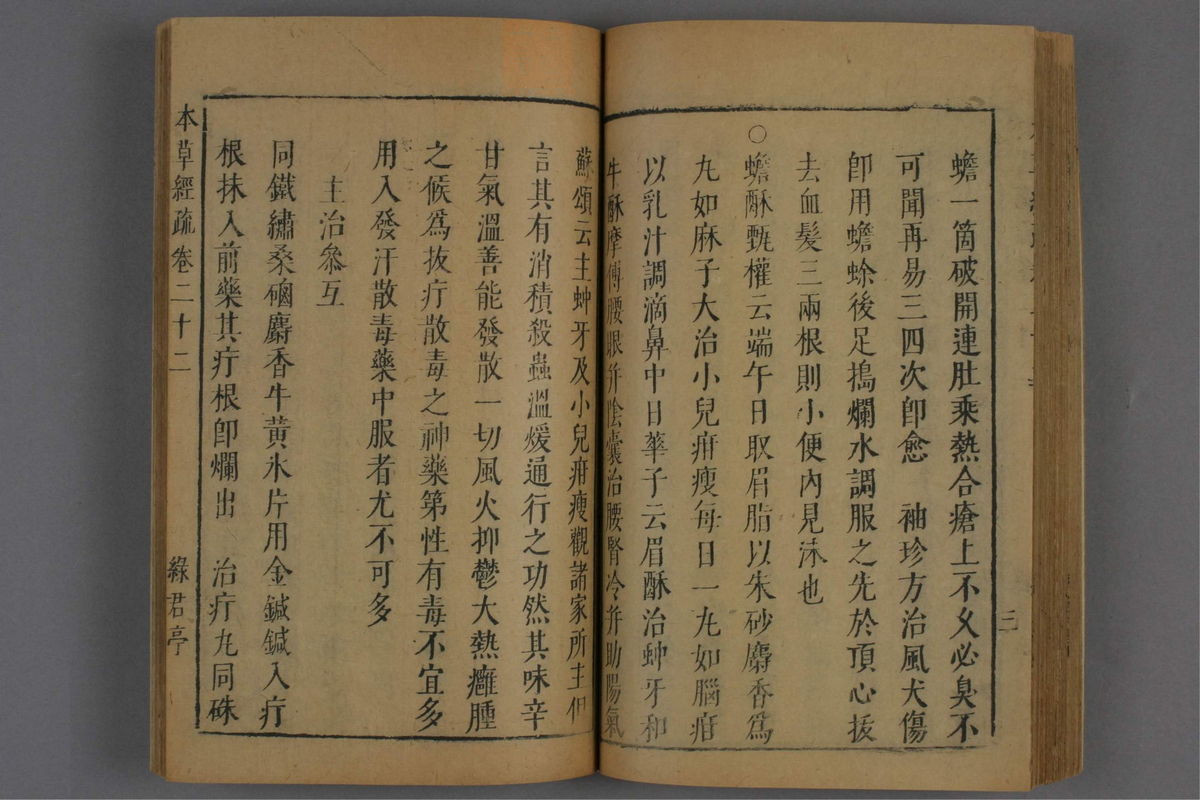 蟾一箇破開連肚乘熱合瘡上不久必臭不
可聞再易三四次卽愈　袖珍方治風犬傷
卽用蟾蜍後足搗爛水調服之先於頂心拔
去血髮三兩根則小便內見沫也
○蟾酥甄權云端午日取眉脂以朱砂麝香爲
丸如麻子大治小兒疳瘦每日一丸如腦疳
以乳汁調滴鼻中日華子云眉酥治蚛牙和
牛酥摩傅腰眼并陰囊治腰腎冷并助陽氣
蘇頌云主蚛牙及小兒疳瘦觀諸家所主但
言其有消積殺蟲溫煖通行之功然其味辛
甘氣溫善能發散一切風火抑鬱大熱癰腫
之候爲拔疔散毒之神藥第性有毒不宜多
用入發汗散毒藥中服者尤不可多
主治叅互
同鐵繡桑硇麝香牛黃氷片用金鍼鍼入疔
根抹入前藥其疔根卽爛出　治疔丸同硃
本草經疏　卷二十二　綠君亭
三